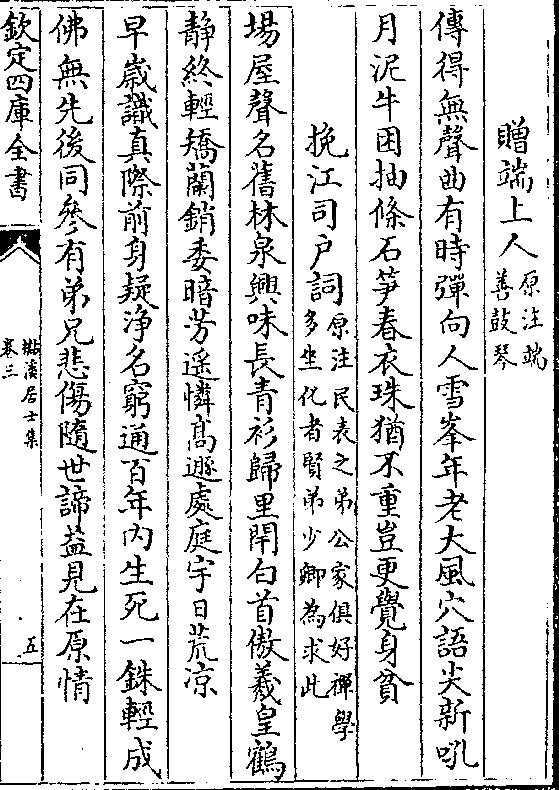 贈端上人原注端善鼓琴
傳得無聲曲有時彈向人雪峯年老大風穴語尖新吼
月泥牛困抽條石笋春衣珠猶不重豈更覺身貧
挽江司户詞原注民表之弟公家俱好禪學多坐化者賢弟少卿為求此
場屋聲名舊林泉興味長青衫歸里閈白首傲羲皇鶴
静終輕矯蘭銷委暗芳遥憐髙遯處庭宇日荒凉
早嵗識真際前身疑浄名窮通百年内生死一銖輕成
佛無先後同參有弟兄悲傷隨世諦益見在原情
欽定四庫全書
櫁溪居士集
卷三
五